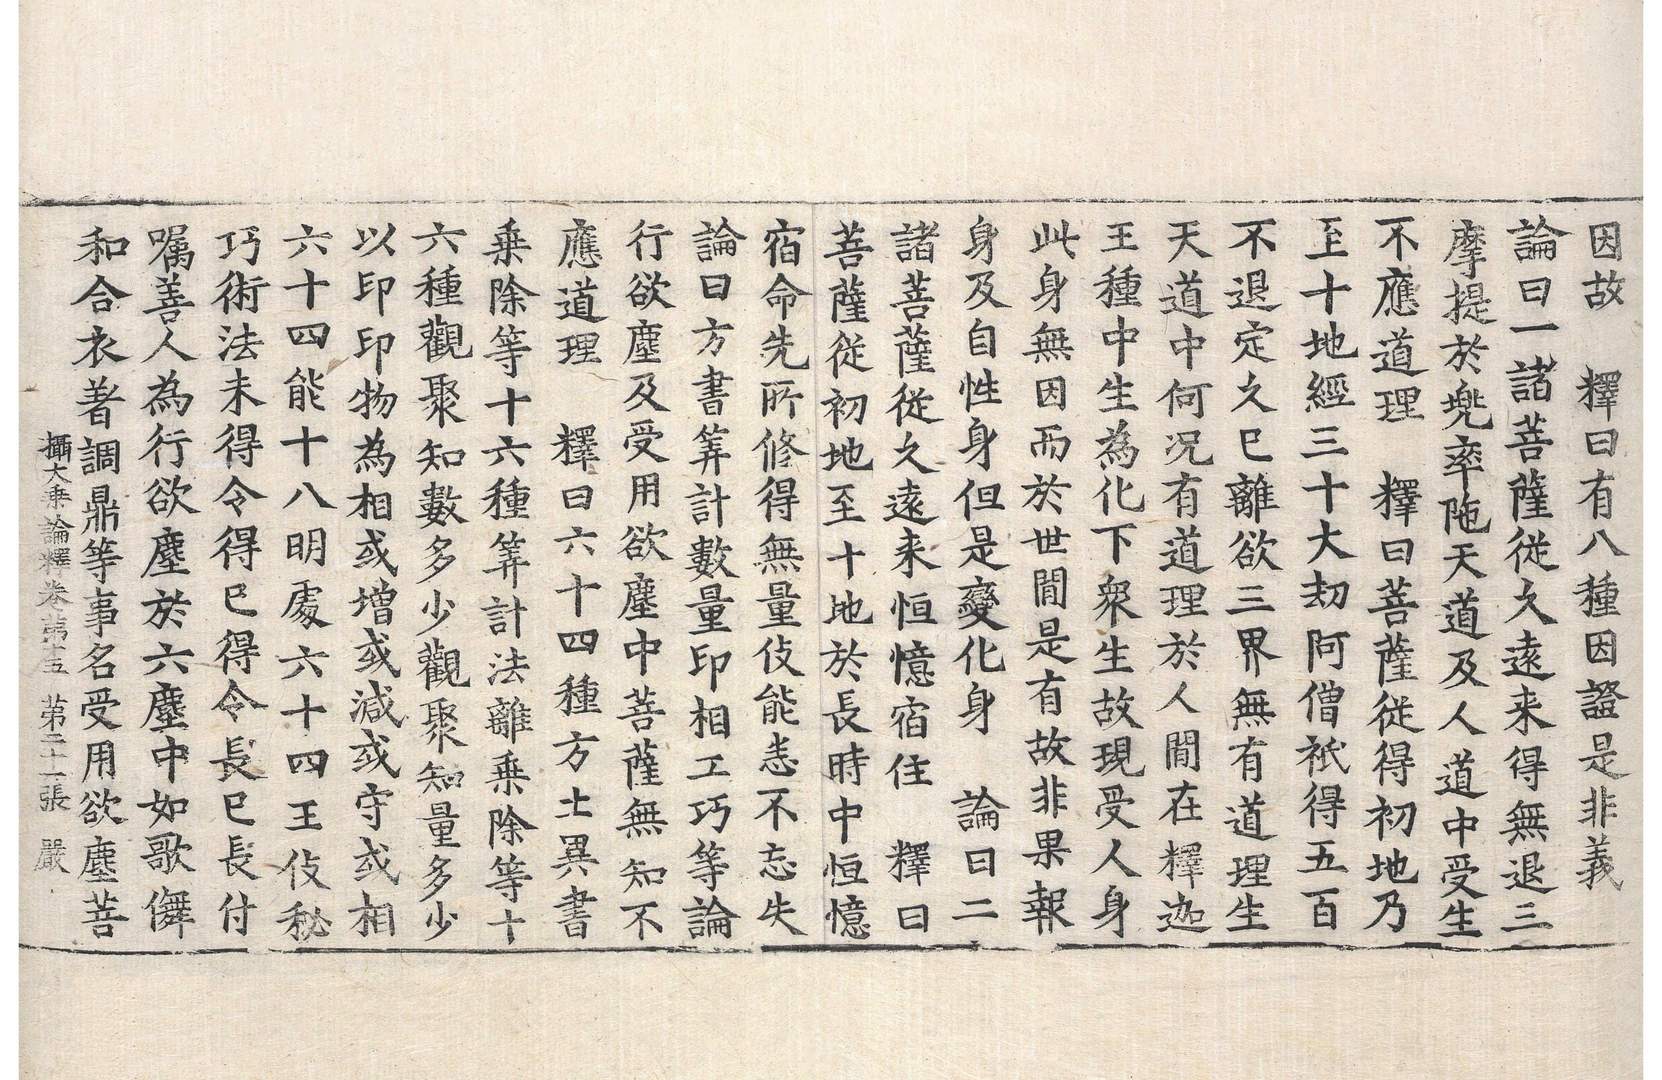 因故　釋曰有八種因證是非義
論曰一諸菩薩從久遠来得無退三
摩提於兠率陁天道及人道中受生
不應道理　釋曰菩薩從得初地乃
至十地經三十大劫阿僧祇得五百
不退定久已離欲三界無有道理生
天道中何况有道理於人閒在釋迦
王種中生為化下衆生故現受人身
此身無因而於世閒是有故非果報
身及自性身但是變化身　論曰二
諸菩薩從久遠来恒憶宿住　釋曰
菩薩從初地至十地於長時中恒憶
宿命先所修得無量伎能恚不忘失
論曰方書筭計數量印相工巧等論
行欲塵及受用欲塵中菩薩無知不
應道理　釋曰六十四種方土異書
乗除等十六種筭計法離乗除等十
六種觀聚知數多少觀聚知量多少
以印印物為相或增或減或守或相
六十四能十八明處六十四王伎秘
巧術法未得令得已得令長已長付
嘱善人為行欲塵於六塵中如歌儛
和合衣著調鼎等事名受用欲塵菩
攝大乗論釋卷第十五　第二十一張　嚴